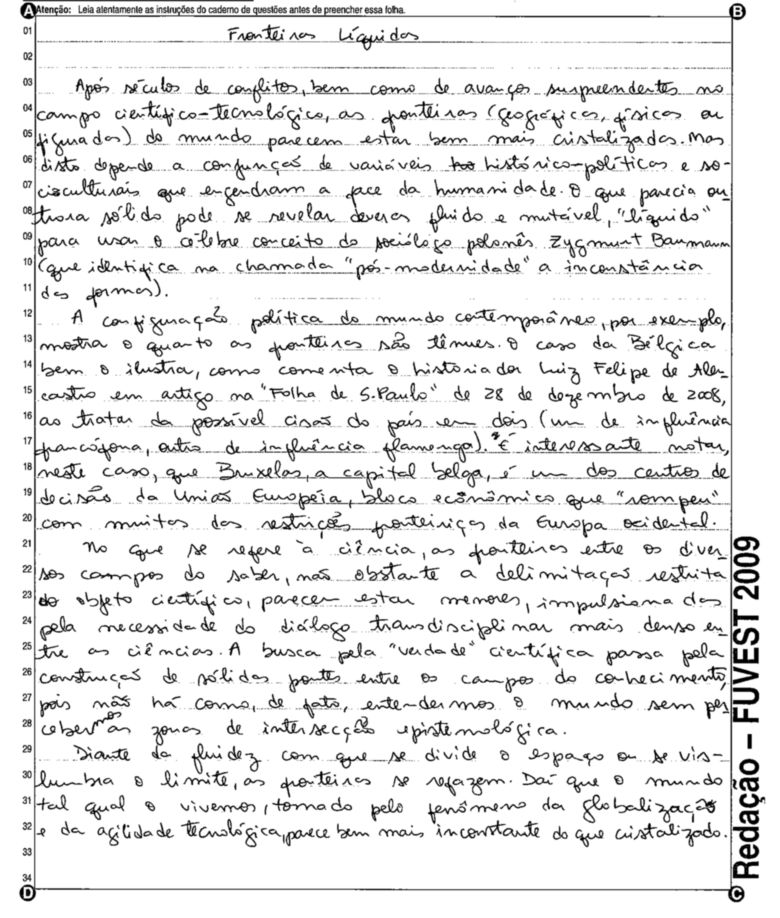 A Atenção: Leia atentamente as instruções do caderno de questões antes de preencher essa folha. B
01 Fronteiras Líquidas
02
03 Após séculos de conflitos, bem como de avanços surpreendentes no
04 campo científico-tecnológico, as fronteiras (geográficas, físicas ou
05 figuradas) do mundo parecem estar bem mais cristalizadas. Mas
06 disto depende a conjunção de variáveis histórico-políticas e so-
07 cioculturais que engendram a face da humanidade. O que parecia ou-
08 trora sólido pode se revelar deveras fluido e mutável, "líquido"
09 para usar o célebre conceito do sociólogo polonês Zygmunt Baumann
10 (que identifica na chamada "pós-modernidade" a inconstância
11 das formas).
12 A configuração política do mundo contemporâneo, por exemplo,
13 mostra o quanto as fronteiras são tênues. O caso da Bélgica
14 bem o ilustra, como comenta o historiador Luiz Felipe de Alen-
15 castro em artigo na "Folha de S.Paulo" de 28 de dezembro de 2008,
16 ao tratar da possível cisão do país em dois (um de influência
17 francófona, outro de influência flamenga). É interessante notar,
18 neste caso, que Bruxelas, a capital belga, é um dos centros de
19 decisão da União Européia, bloco econômico que "rompeu"
20 com muitas das restrições fronteiriças da Europa ocidental.
21 No que se refere à ciência, as fronteiras entre os diver-
22 sos campos do saber, não obstante a delimitação restrita
23 do objeto científico, parecem estar menores, impulsionadas
24 pela necessidade do diálogo transdisciplinar mais denso en-
25 tre as ciências. A busca pela "verdade" científica passa pela
26 construção de sólidas pontes entre os campos do conhecimento,
27 pois não há como, de fato, entendermos o mundo sem per-
28 cebermos as zonas de intersecção epistemológica.
29 Diante da fluidez com que se divide o espaço ou se vis-
30 lumbra o limite, as fronteiras se refazem. Daí que o mundo
31 tal qual o vivemos, tomado pelo fenômeno da globalização
32 e da agilidade tecnológica, parece bem mais inconstante do que cristalizado.
33
34
D C
Redação – FUVEST 2009